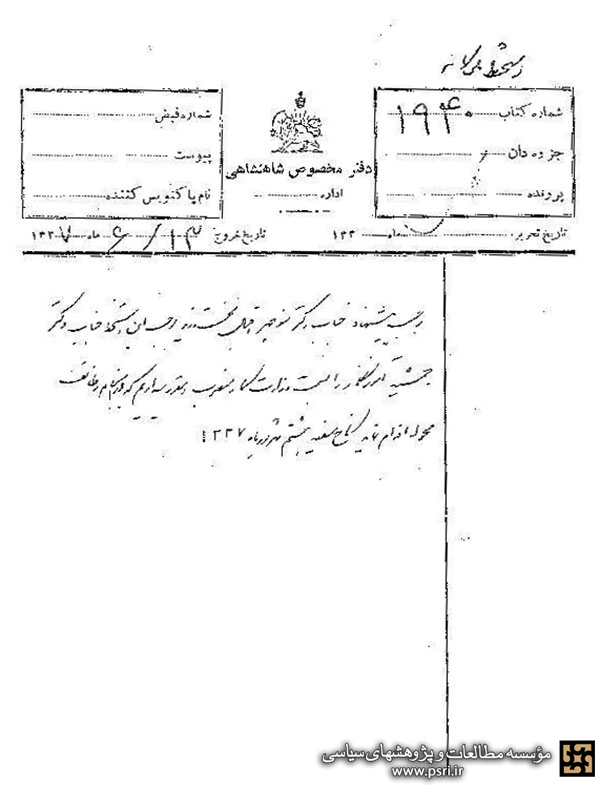 دستخط ملوکانه
شماره کتاب ۱۹۴۰
جزوه دان
پرونده
دفتر مخصوص شاهنشاهی
اداره
شماره قبض
پیوست
نام پاکنویس کننده
تاریخ تحریر ماه ۱۳۳
تاریخ خروج ۱۳ / ۶ ماه ۱۳۳۷
بر حسب پیشنهاد جناب دکتر منوچهر اقبال نخست وزیر بموجب این دستخط جناب دکتر
جمشید آموزگار را بسمت وزارت کار منصوب و مقرر میداریم که در انجام وظائف
محوله اقدام نماید کاخ سفید هشتم شهریور ماه ۱۳۳۷
مؤسسه مطالعات و پژوهشهای سیاسی
www.psri.ir